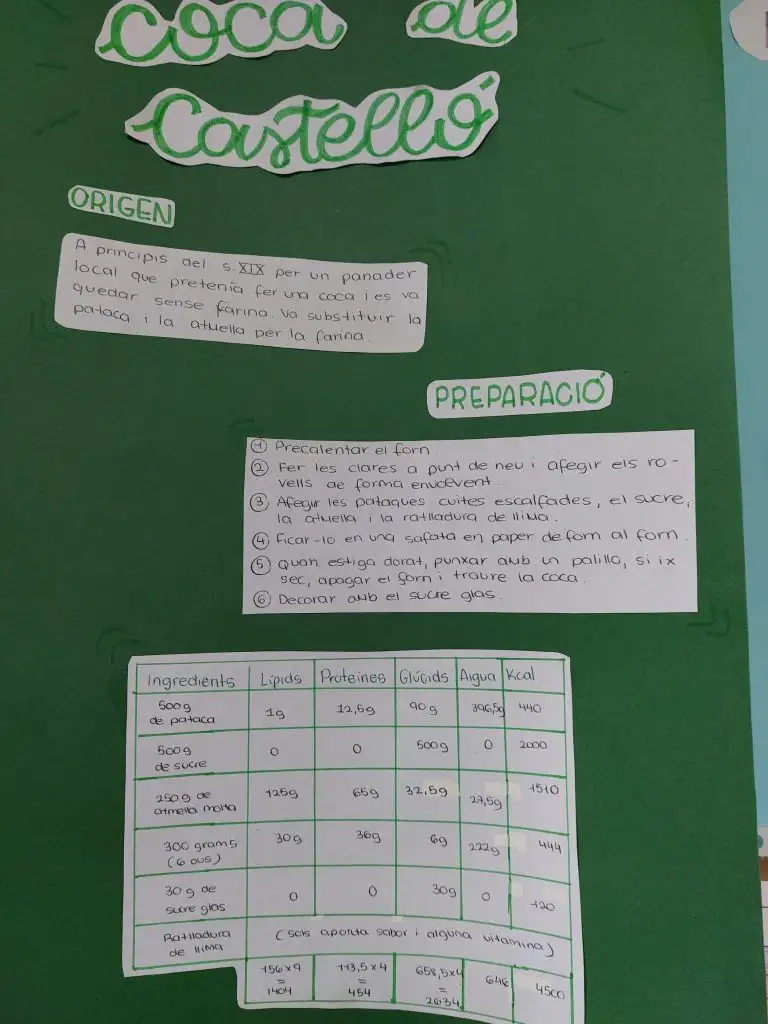 coca de
Castelló
ORIGEN
A principis del s. XIX per un panader
local que pretenía fer una coca i es va
quedar sense farina. Va substituir la
pataca i la atmella per la farina.
PREPARACIÓ
1 Precalentar el forn.
2 Fer les clares a punt de neu i afegir els ro-
vells de forma envolvent.
3 Afegir les pataques cuites escalfades, el sucre,
la atmella i la ratlladura de llima.
4 Ficar-lo en una safata en paper de forn al forn.
5 Quan estiga dorat, punxar amb un palillo, si ix
sec, apagar el forn i traure la coca.
6 Decorar amb el sucre glas.
Ingredients Lípids Proteïnes Glúcids Aigua Kcal
500g
de pataca 1g 12,5g 90g 396,5g 440
500g
de sucre 0 0 500g 0 2000
250g de
atmella molta 125g 65g 32,5g 27,5g 1510
300 grams
(6 ous) 30g 36g 6g 222g 444
30g de
sucre glas 0 0 30g 0 120
Ratlladura
de llima (sols aporta sabor i alguna vitamina)
156x9 113,5x4 658,5x4 646 4500
= = =
1404 454 2634